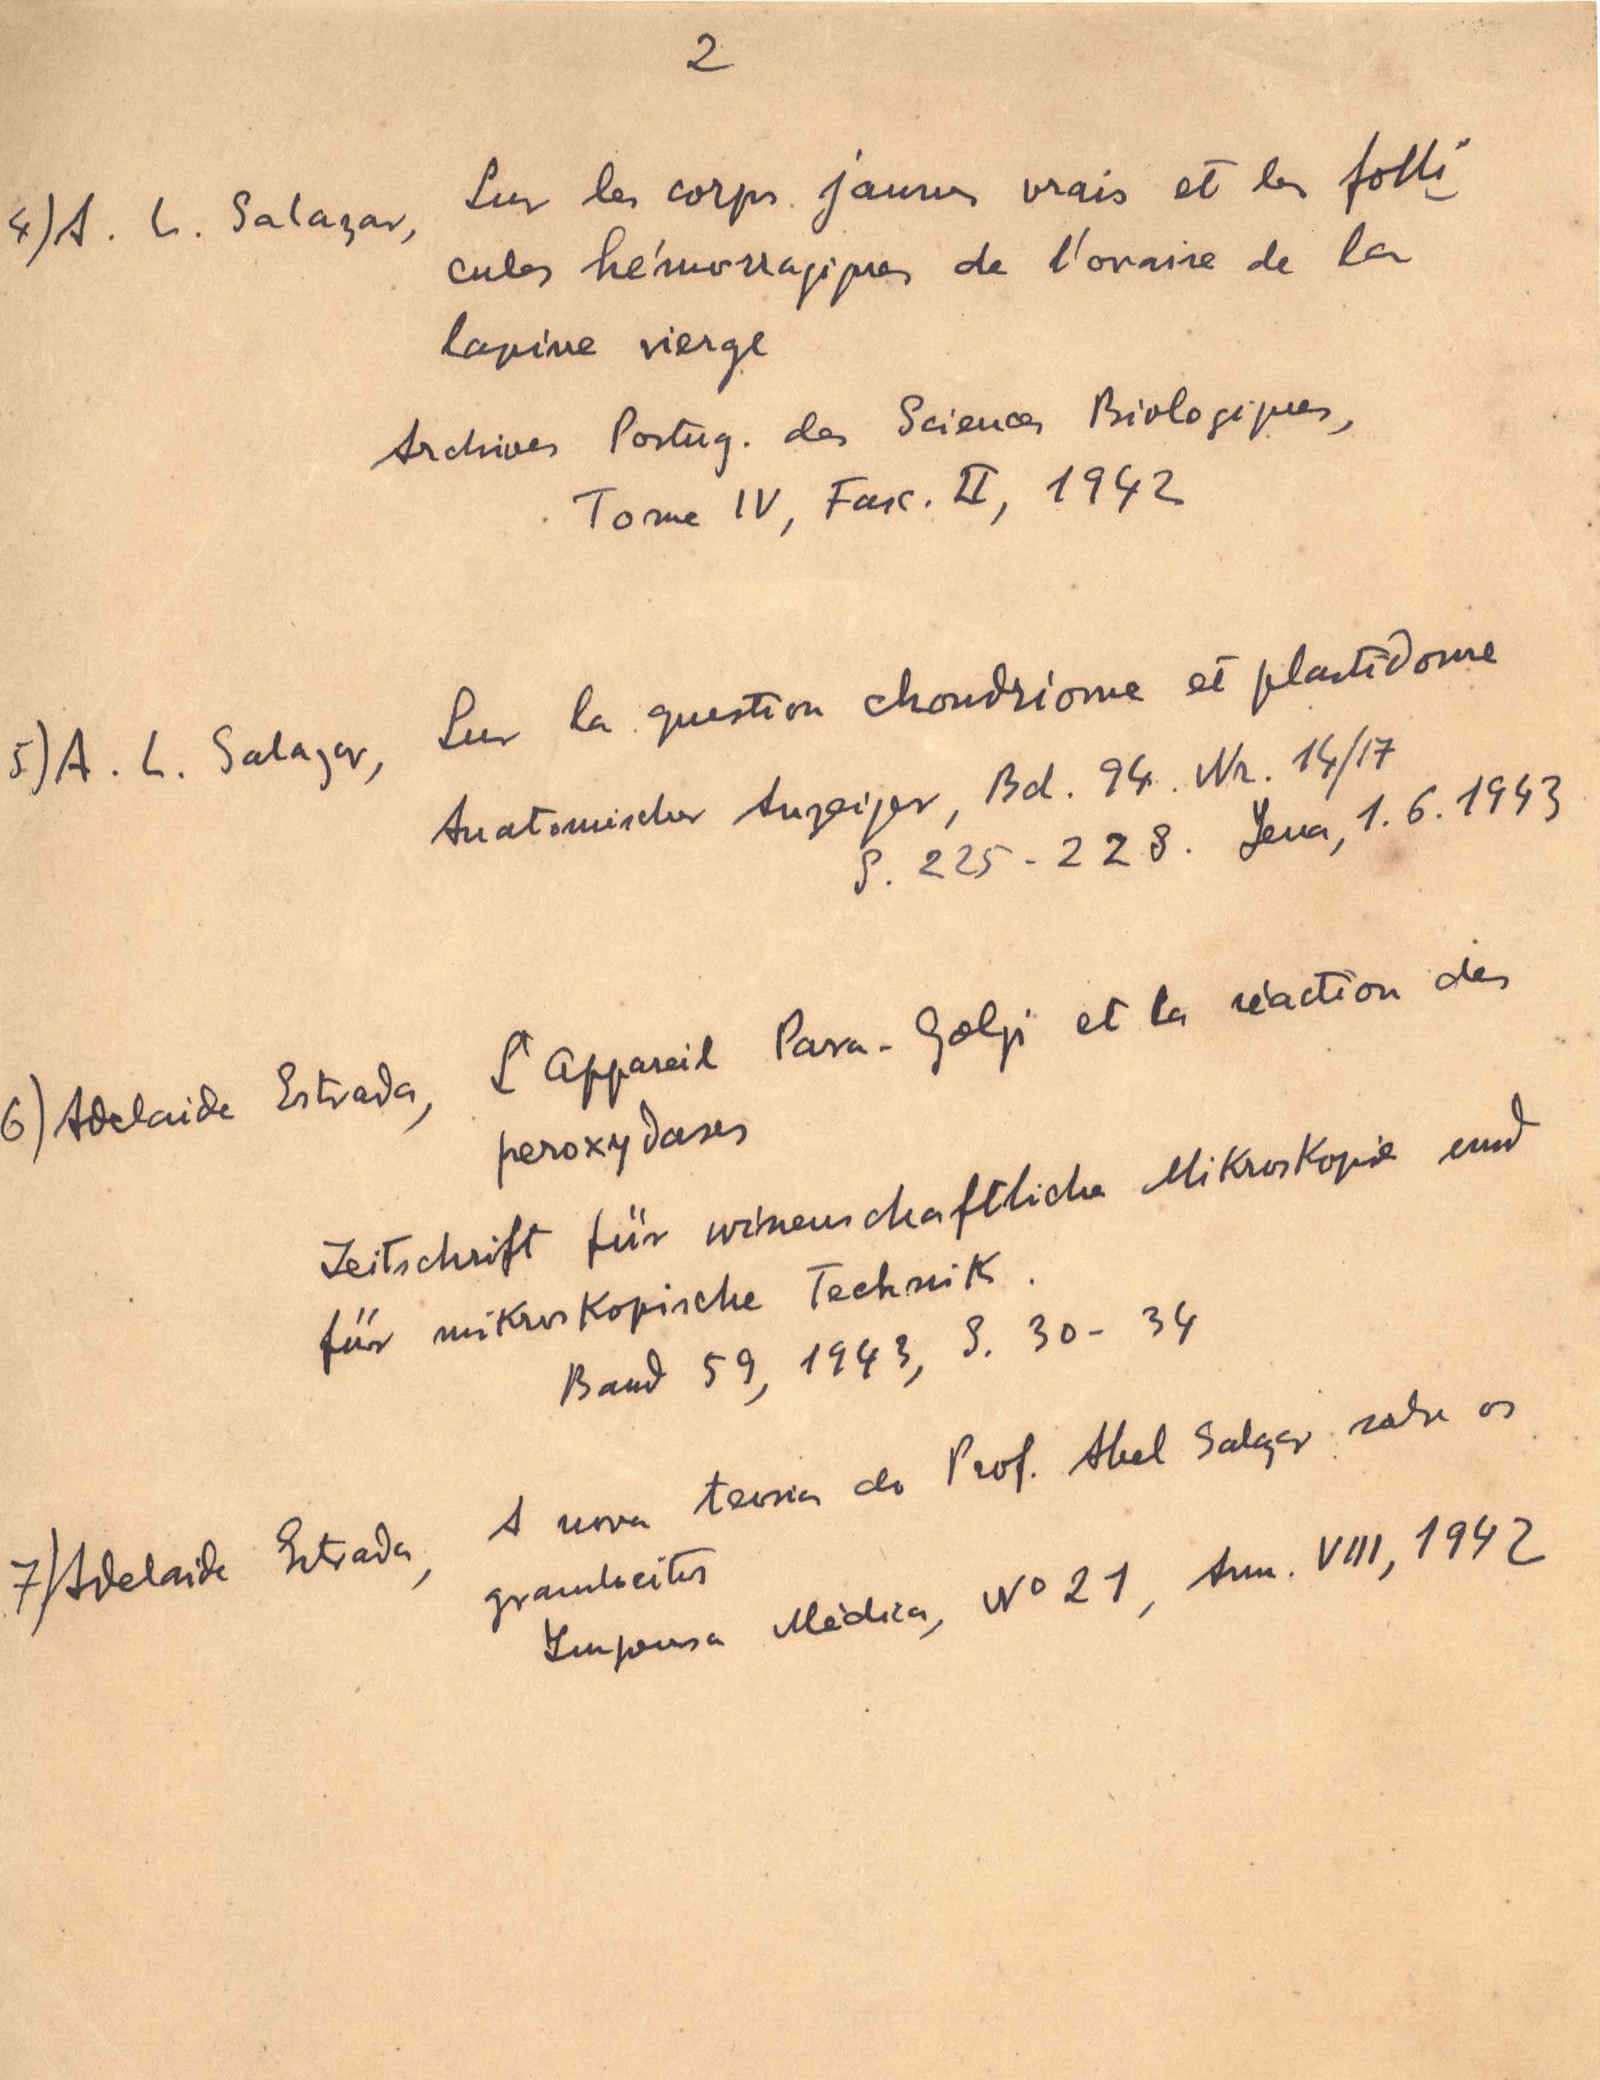 2
4) A. L. Salazar, Sur les corps jaunes vrais et les folli
cules hémorragiques de l'ovaire de la
lapine vierge
Archives Portug. des Sciences Biologiques,
Tome IV, Fasc. II, 1942
5) A. L. Salazar, Sur la question chondriome et plastidome
Anatomischer Anzeiger, Bd. 94. Nr. 14/17
S. 225-228. Jena, 1.6.1943
6) Adelaide Estrada, L'Appareil Para-Golgi et la réaction des
peroxydases
Zeitschrift für wissenschaftliche Mikroskopie und
für mikroskopische Technik.
Band 59, 1943, S. 30-34
7) Adelaide Estrada, A nova teoria do Prof. Abel Salazar sobre os
granulocitos
Imprensa Médica, Nº 21, Ann. VIII, 1942